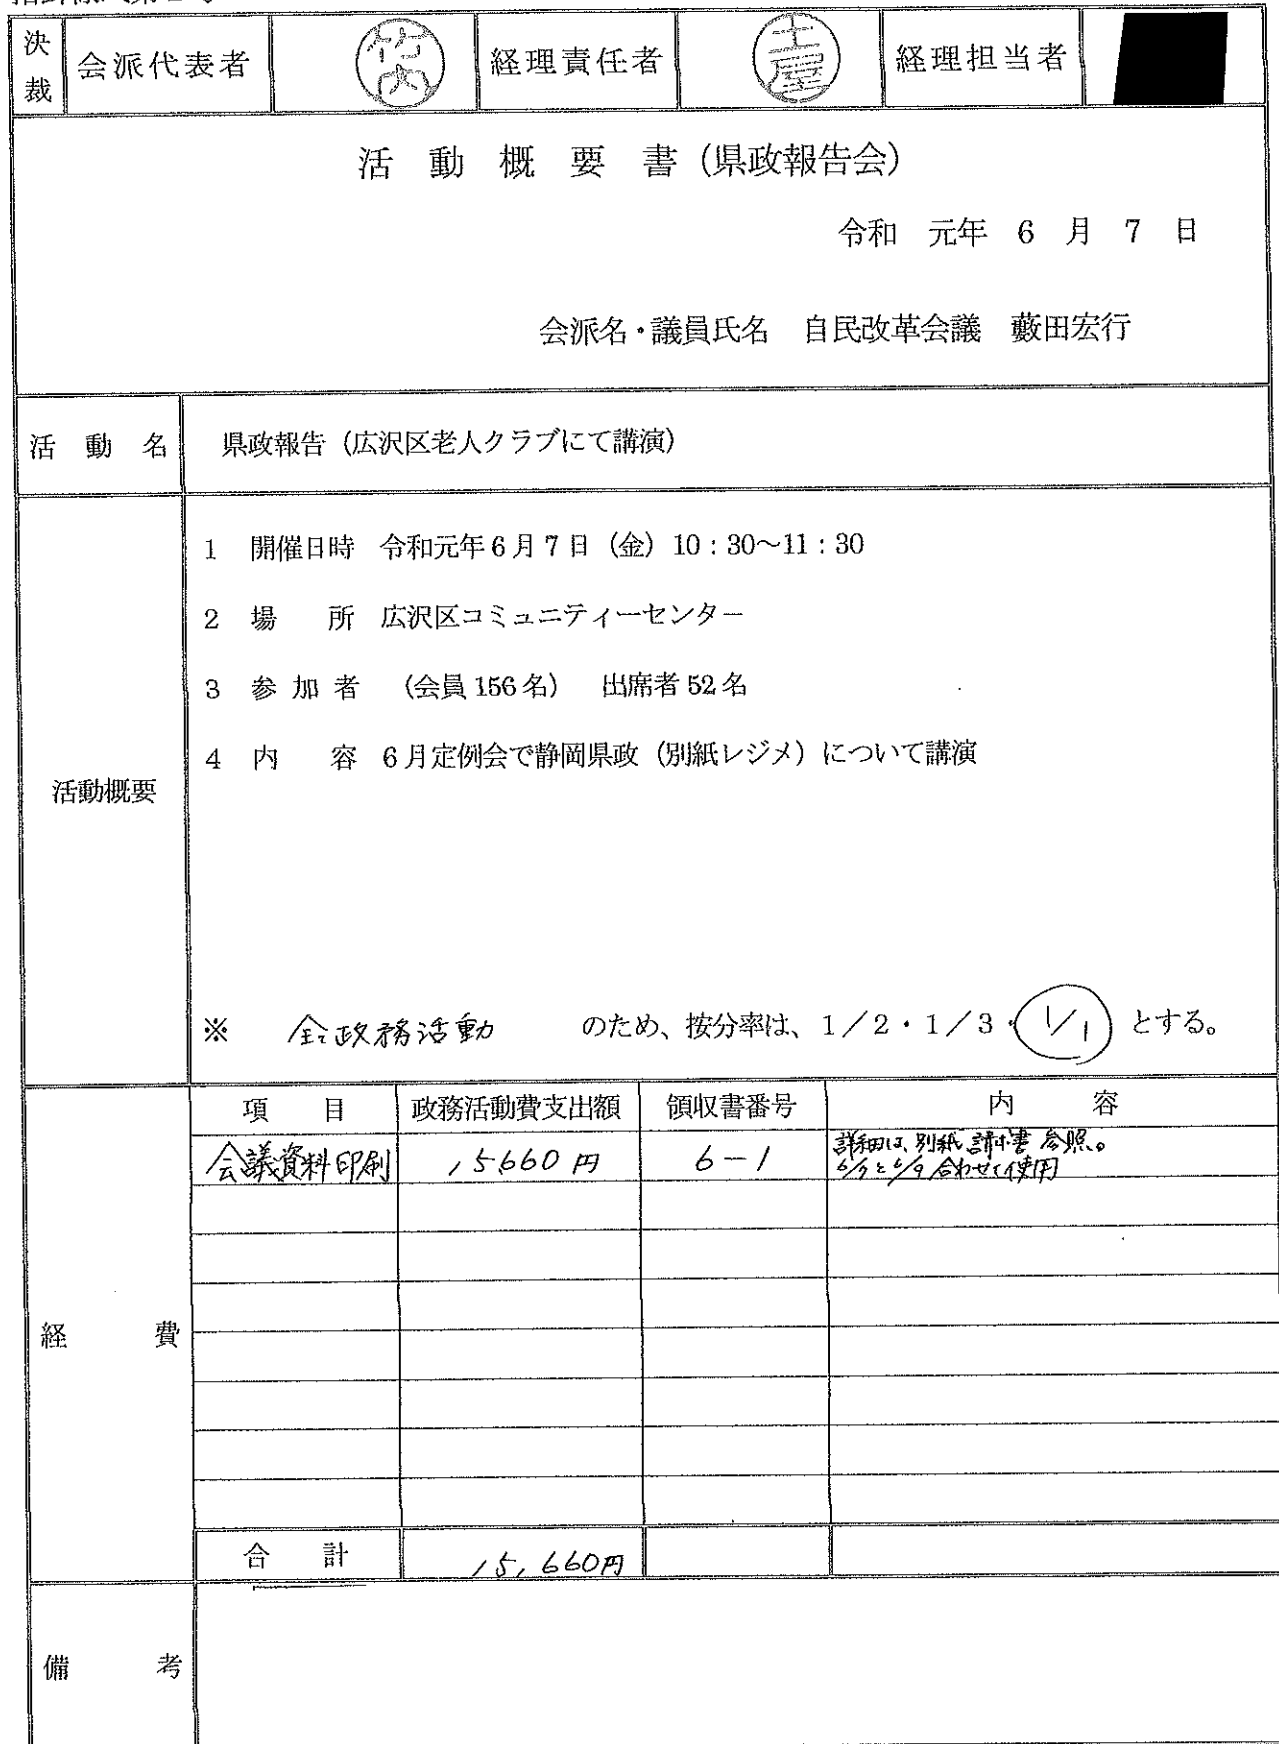 決裁 会派代表者 竹内 経理責任者 土屋 経理担当者
活動概要書(県政報告会)
令和 元年 6 月 7 日
会派名・議員氏名 自民改革会議 藪田宏行
活動名 県政報告(広沢区老人クラブにて講演)
活動概要
1 開催日時 令和元年6月7日(金)10:30～11:30
2 場所 広沢区コミュニティーセンター
3 参加者 (会員156名) 出席者52名
4 内容 6月定例会で静岡県政(別紙レジメ)について講演
※ 全政務活動 のため、按分率は、1/2・1/3・1/1 とする。
経費
項目 政務活動費支出額 領収書番号 内容
会議資料印刷 15,660円 6-1 詳細は、別紙請求書参照。
6/7と6/9合わせて使用
合計 15,660円
備考